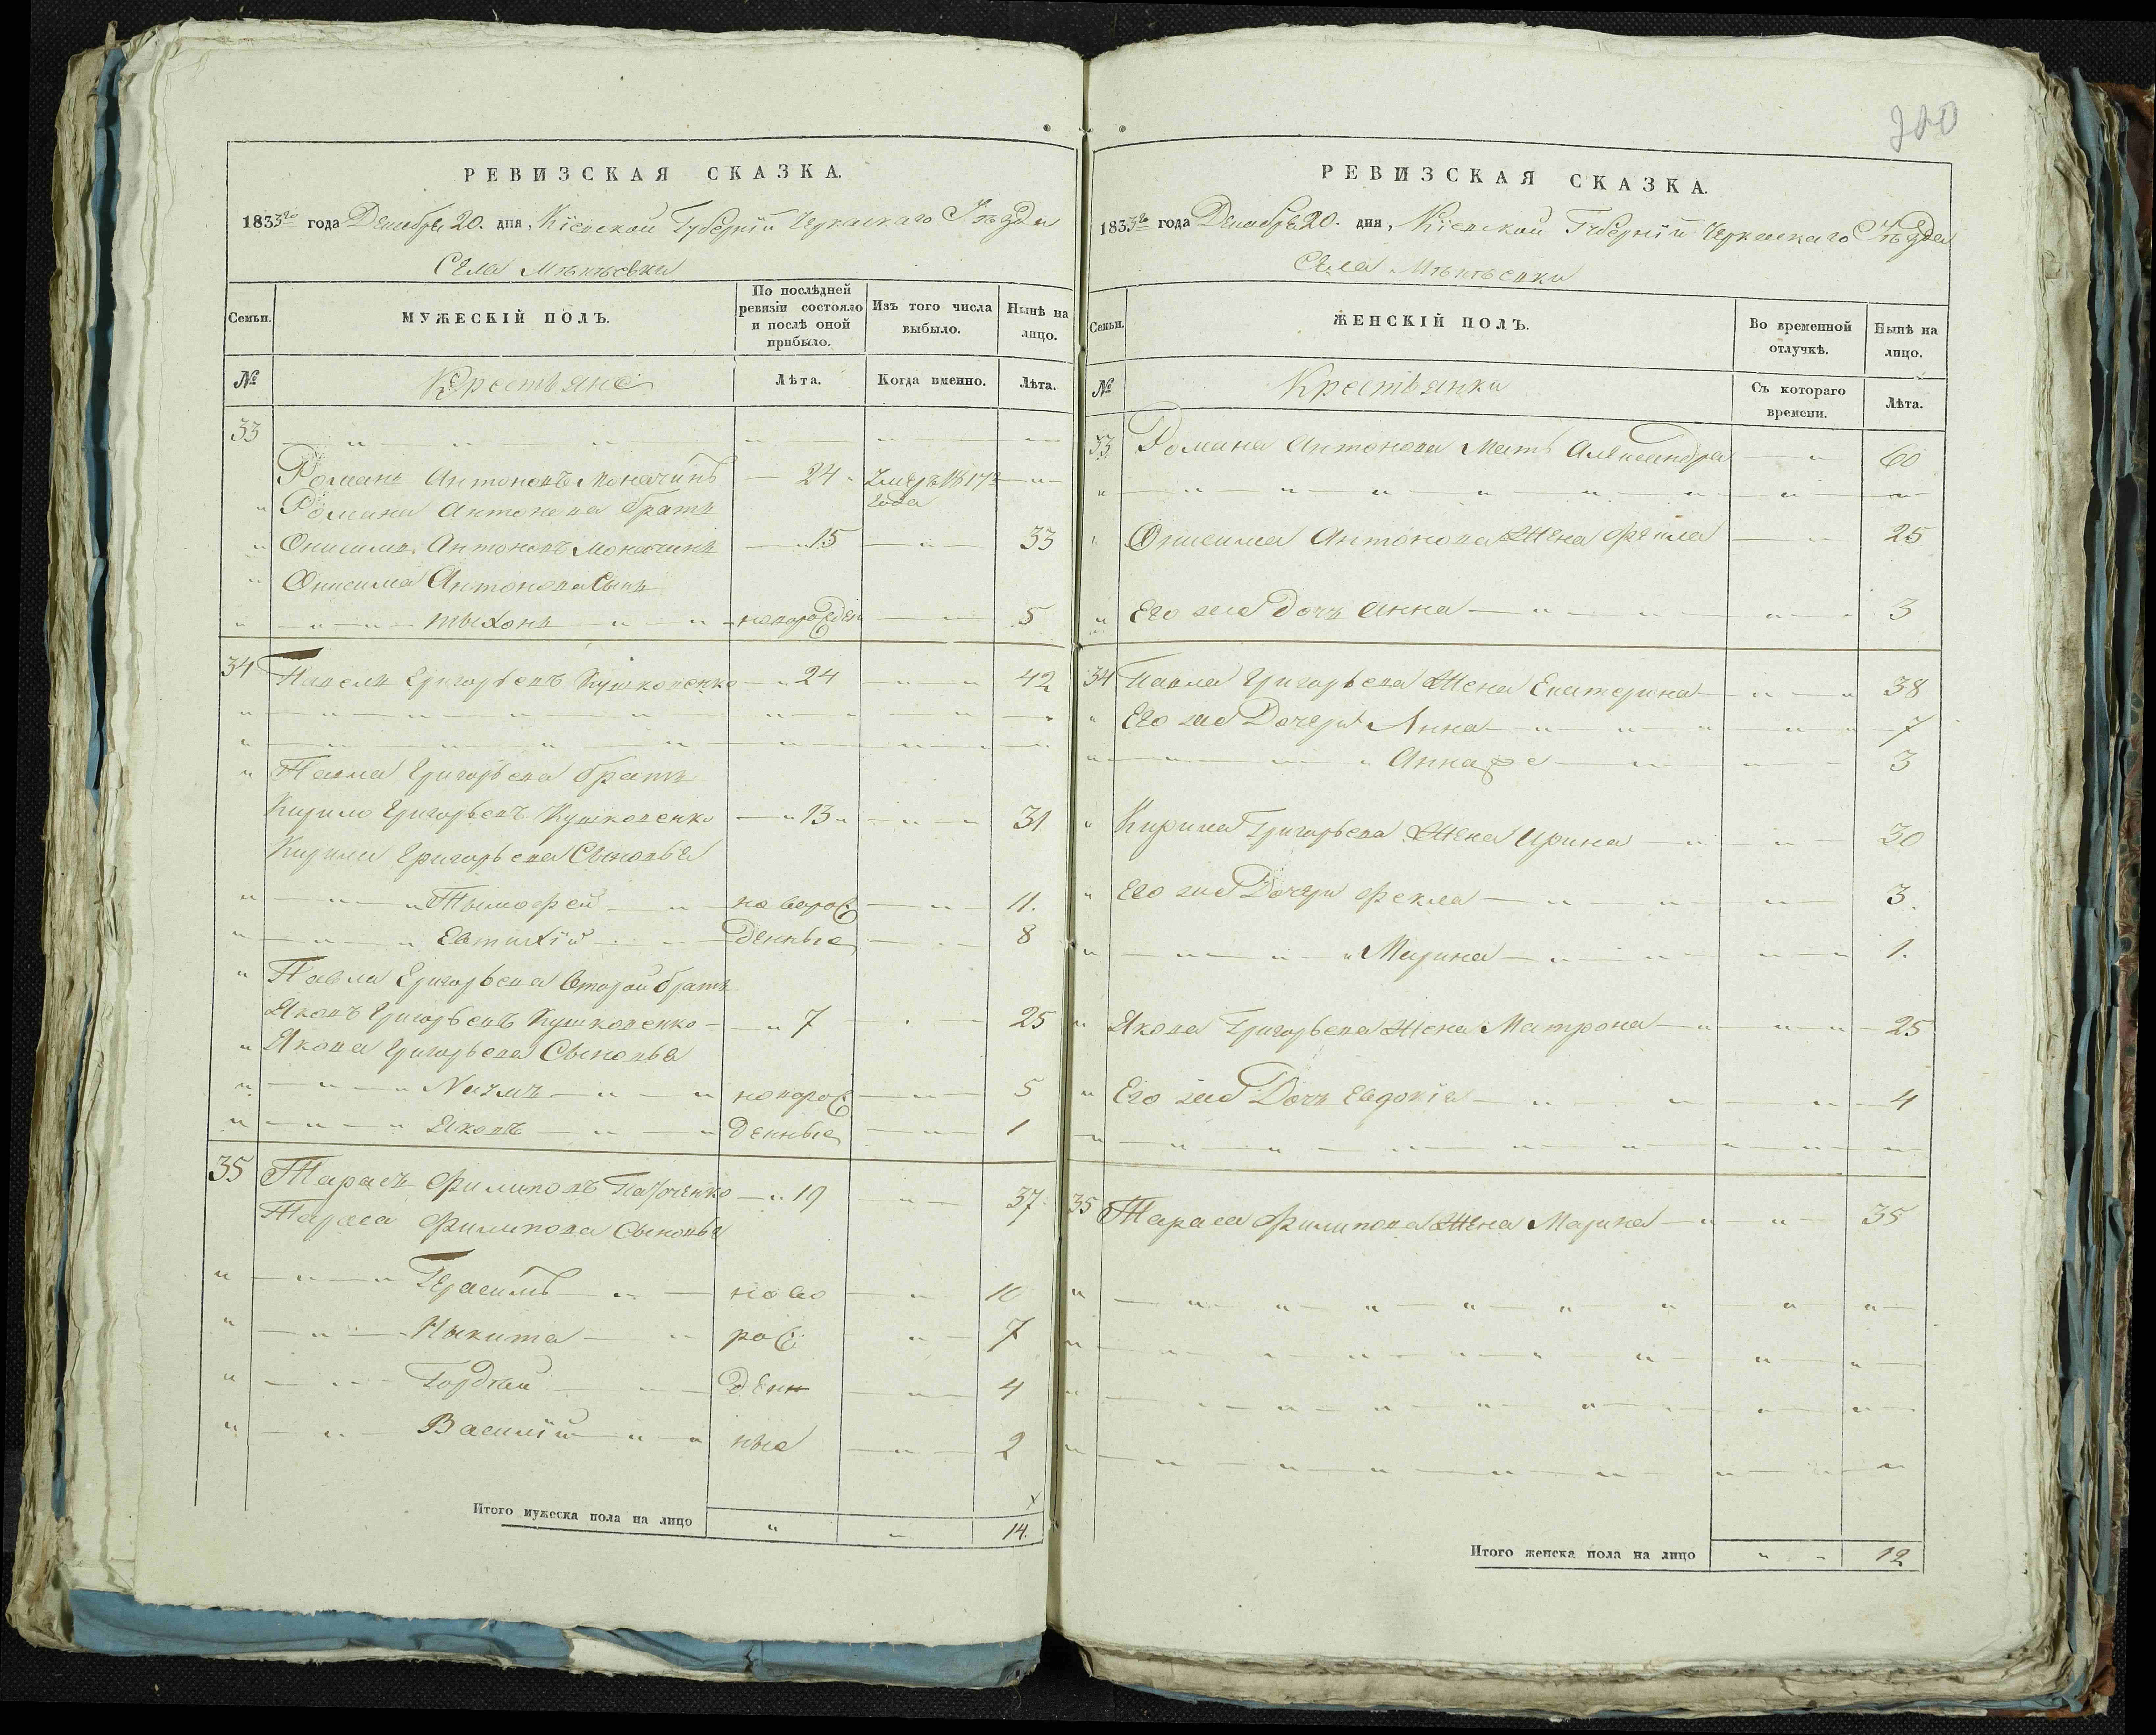 РЕВИЗСКАЯ СКАЗКА.
1833го года Декабря 20. дня, Кіевской Губерніи Черкаскаго Уѣзда
Села Мѣлѣевки
Семьи.
МУЖЕСКІЙ ПОЛЪ.
По послѣдней ревизіи состояло и послѣ оной прибыло.
Изъ того числа выбыло.
Нынѣ на лицо.
№
Крестьяне
Лѣта.
Когда именно.
Лѣта.
33
Романъ Антоновъ Моначинъ — 24 Умеръ 1817 года
" Романа Антонова братъ
" Онисимъ Антоновъ Моначинъ — 15 — " — 33
" Онисима Антонова Сынъ
" Тыхонъ — " — новорожден — 5
34 Павелъ Григорьевъ Кушкопенко — " 24 — " — 42
" Павла Григорьева братъ
Кирило Григорьевъ Кушкопенко — " 13 " — " — 31
Кирила Григорьева Сыновья
" — " Тымофей — " — новорож — " 11.
" — " Евтихій — денные — 8
" Павла Григорьева второй братъ
Яковъ Григорьевъ Кушкопенко — " 7 — 25
" Якова Григорьева Сыновья
" — " Наумъ — " — " новорож — " — 5
" — " Яковъ — " — " денные — 1
35 Тарасъ Филиповъ — " 19 — " — 37
Тараса Филипова Сыновья
" — " — " Герасимъ — " — ново — " 10
" — " — Ныкита — " рож " — 7
" — " — Гордѣй — " — денн — " — 4
" — " — Василій — " — " ные — " — 2
Итого мужеска пола на лицо " " 14.
200
РЕВИЗСКАЯ СКАЗКА.
1833го года Декабря 20. дня, Кіевской Губерніи Черкаскаго Уѣзда
Села Мѣлѣевки
Семьи.
ЖЕНСКІЙ ПОЛЪ.
Во временной отлучкѣ.
Нынѣ на лицо.
№
Крестьянки
Съ котораго времени.
Лѣта.
33 Романа Антонова Мать Александра — " 60
" Онисима Антонова Жена Фекла — " 25
" Его же Дочь Анна — " — " 3
34 Павла Григорьева Жена Екатерина — " — " 38
" Его же Дочери Анна — " — " 7
" — " — " Аннафе — " — " 3
" Кирила Григорьева Жена Ирина — " — " 30
" Его же Дочери Фекла — " — " 3.
" — " — " Марина — " — " 1.
" Якова Григорьева Жена Матрона — " — " 25
" Его же Дочь Евдокія — " — " 4
35 Тараса Филипова Жена Марина — " — " 35
Итого женска пола на лицо " " 12